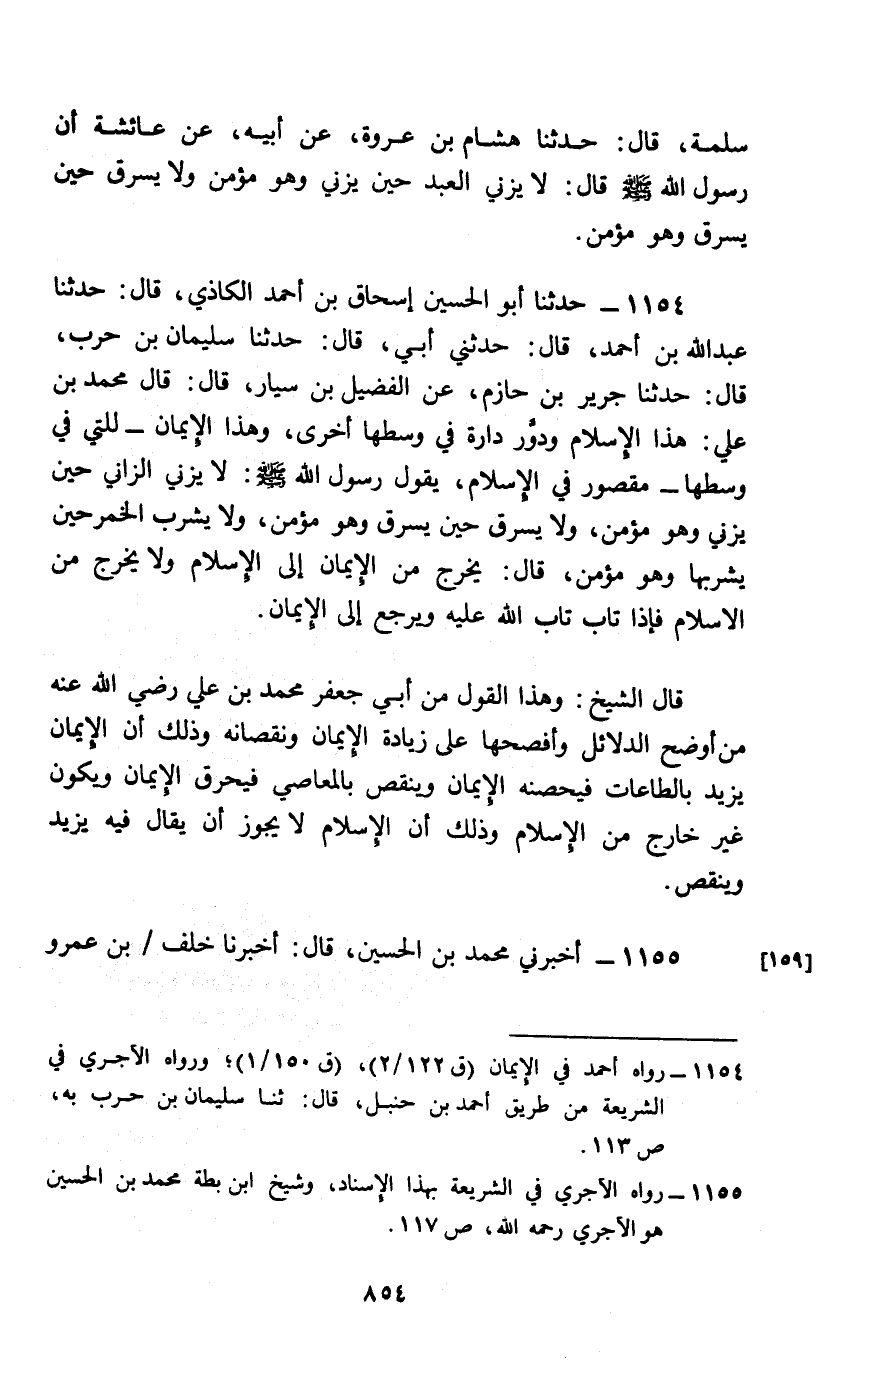 سلمة، قال: حدثنا هشام بن عروة، عن أبيه، عن عائشة أن
رسول الله ﷺ قال: لا يزني العبد حين يزني وهو مؤمن ولا يسرق حين
يسرق وهو مؤمن.
١١٥٤ ـ حدثنا أبو الحسين إسحاق بن أحمد الكاذي، قال: حدثنا
عبدالله بن أحمد، قال: حدثني أبي، قال: حدثنا سليمان بن حرب،
قال: حدثنا جرير بن حازم، عن الفضيل بن سيار، قال: قال محمد بن
علي: هذا الإسلام ودوَّر دارة في وسطها أخرى، وهذا الإيمان ـ للتي في
وسطها ـ مقصور في الإسلام، يقول رسول الله ﷺ: لا يزني الزاني حين
يزني وهو مؤمن، ولا يسرق حين يسرق وهو مؤمن، ولا يشرب الخمر حين
يشربها وهو مؤمن، قال: يخرج من الإيمان إلى الإسلام ولا يخرج من
الاسلام فإذا تاب تاب الله عليه ويرجع إلى الإيمان.
قال الشيخ: وهذا القول من أبي جعفر محمد بن علي رضي الله عنه
من أوضح الدلائل وأفصحها على زيادة الإيمان ونقصانه وذلك أن الإيمان
يزيد بالطاعات فيحصنه الإيمان وينقص بالمعاصي فيحرق الإيمان ويكون
غير خارج من الإسلام وذلك أن الإسلام لا يجوز أن يقال فيه يزيد
وينقص.
[١٥٩] ١١٥٥ ـ أخبرني محمد بن الحسين، قال: أخبرنا خلف / بن عمرو
١١٥٤ ـ رواه أحمد في الإيمان (ق ٢/١٢٢)، (ق ١/١٥٠)؛ ورواه الآجري في
الشريعة من طريق أحمد بن حنبل، قال: ثنا سليمان بن حرب به،
ص ١١٣.
١١٥٥ ـ رواه الآجري في الشريعة بهذا الإسناد، وشيخ ابن بطة محمد بن الحسين
هو الآجري رحمه الله، ص ١١٧.
٨٥٤